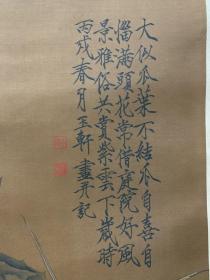 大似瓜葉不结瓜自喜自
惱滿頭花常借庭院好風
景雅俗共賞紫雲下歲時
丙戌春月玉軒畫并記